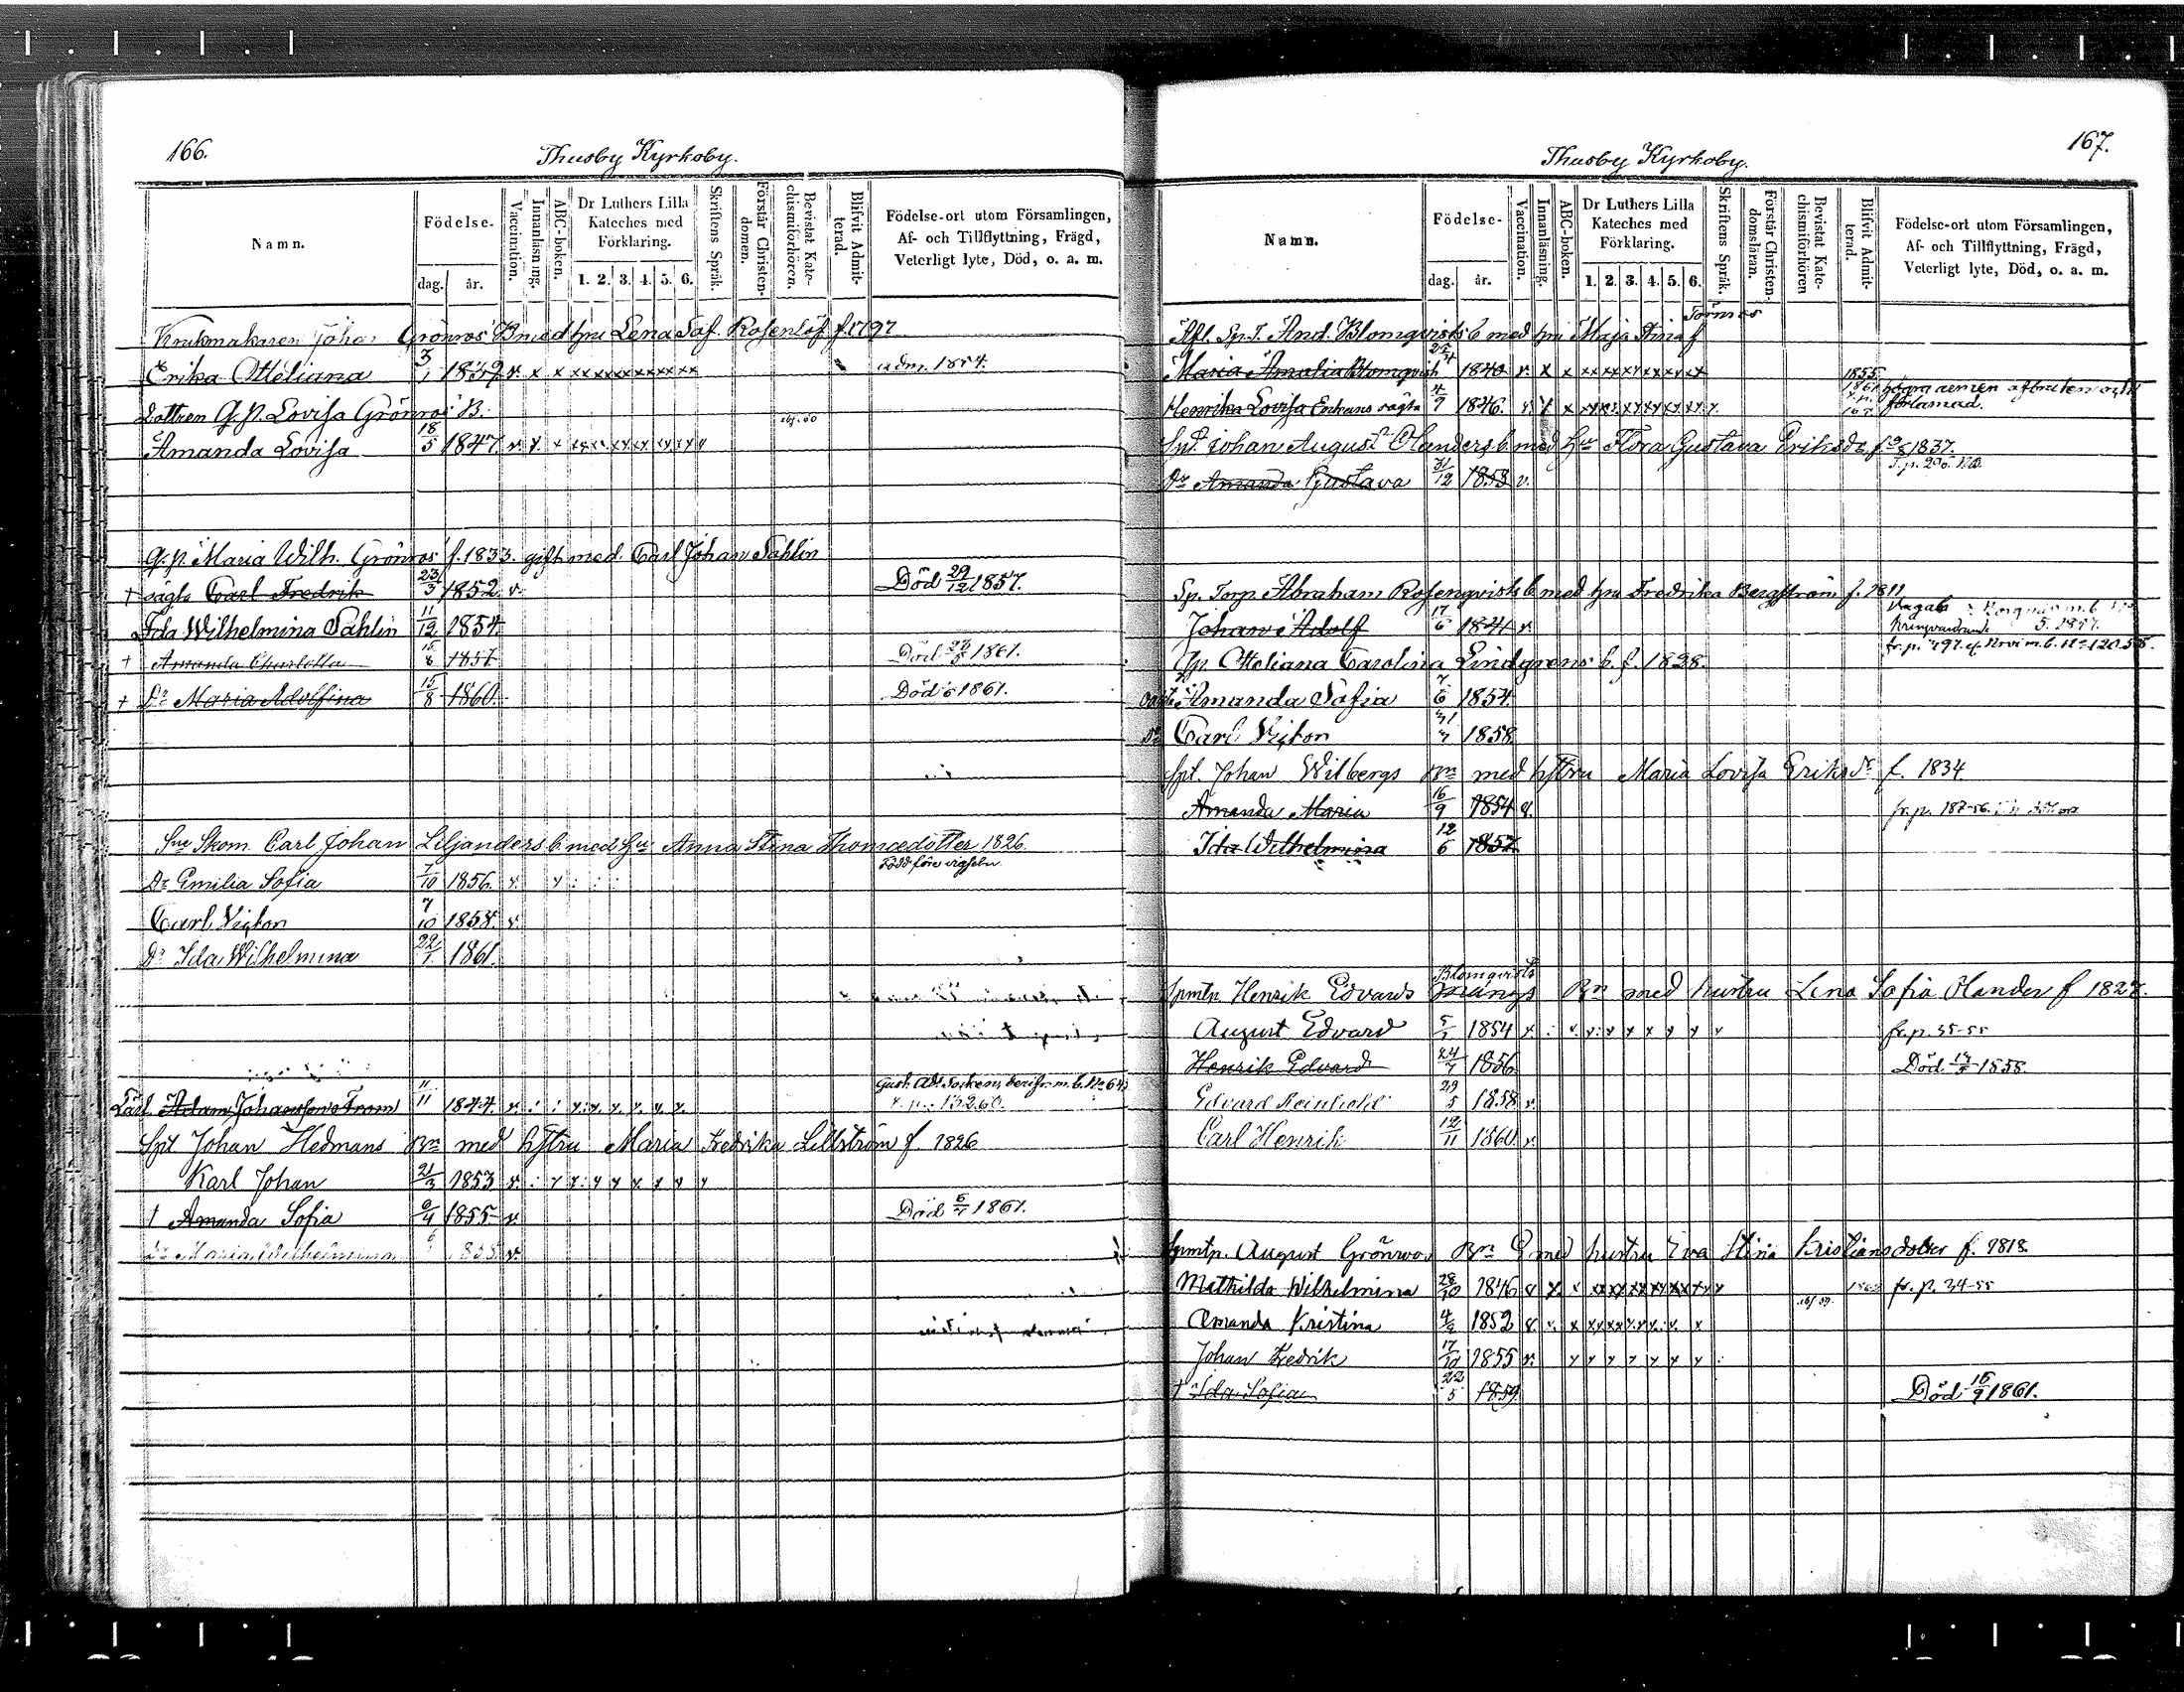 166.
Thusby Kyrkoby.
Namn.
Födelse-
dag. år.
Vaccination.
Innanläsning.
ABC-boken.
Dr Luthers Lilla Kateches med Förklaring.
1. 2. 3. 4. 5. 6.
Skriftens Språk.
Förstår Christendomen.
Bevistat Katechismiförhören.
Blifvit Admitterad.
Födelse-ort utom Församlingen, Af- och Tillflyttning, Frägd, Veterligt lyte, Död, o. a. m.
Krukmakaren Johan Grönroos' B med hru Lena Sof. Rosenlöf f. 1797
Erika Otteliana 3/1 1839 v. x x xx xx xx xx xx xx adm. 1854.
Dottren Q.p. Lovisa Grönroos' B.
Amanda Lovisa 18/5 1847 v.
Q.p. Maria Wilh. Grönroos' f. 1833. gift med Carl Johan Sahlin
† oägta Carl Fredrik 23/3 1852 v. Död 29/12 1857.
Ida Wilhelmina Sahlin 11/12 1854.
† Amanda Charlotta 1857 Död 1861.
† Dr Maria Adolfina 15/8 1860. Död 1861.
Skom. Carl Johan Liljanders b med hu Anna Stina Thomædotter 1826.
född före vigseln
Dr Emilia Sofia 7/10 1856. v.
Carl Victor 7/10 1858. v.
Dr Ida Wilhelmina 22/1 1861.
Lärl. Adam Johansson From 11/11 1844. v.
Spl Johan Hedmans Bn med hstru Maria Fredrika Lillström f. 1826
Karl Johan 21/3 1853 v.
† Amanda Sofia 9/4 1855 v. Död 1861.
Dr Maria Wilhelmina 1858 v.
167.
Thusby Kyrkoby.
Namn.
Födelse-
dag. år.
Vaccination.
Innanläsning.
ABC-boken.
Dr Luthers Lilla Kateches med Förklaring.
1. 2. 3. 4. 5. 6.
Skriftens Språk.
Förstår Christendomsläran.
Bevistat Katechismiförhören
Blifvit Admitterad.
Födelse-ort utom Församlingen, Af- och Tillflyttning, Frägd, Veterligt lyte, Död, o. a. m.
Törnroos
Afl. Sp.T. And. Blomqvists b med hru Maja Stina f
Maria Amalia Blomqvist 1840 v. x x 1855.
Henrika Lovisa Enkans oägta 4/9 1846. 1861 högra armen afbruten och förlamad.
Spl. Johan August Olanders b. med hu Flora Gustava Eriksdr f. 1837.
Dr Amanda Gustava 31/12 1858 v.
Sp. Torp. Abraham Rosenqvists b med hru Fredrika Bergström f. 1811
Johan Adolf 17/6 1841 v.
Qp. Otteliana Carolina Lindgrens b. f. 1828.
oägta Amanda Sofia 7/6 1854.
Dr Carl Victor 1858
Spl. Johan Wilbergs Bn med hstru Maria Lovisa Eriksdr f. 1834
Amanda Maria 16/9 1854 v. fr. p. 187-56.
Ida Wilhelmina 12/6 1857
Spmtp. Henrik Edvards Blomqvists Bn med hustru Lena Sofia Olander f 1827.
August Edvard 1854 v. fr. p. 35-55
Henrik Edvard 24/7 1856 Död 1858
Edvard Reinhold 29/5 1858 v.
Carl Henrik 12/11 1860 v.
Spmtp. August Grönroos Bn med hustru Eva Stina Kristiansdotter f. 1818.
Mathilda Wilhelmina 28/10 1846 v fr. p. 34-55
Amanda Kristina 1852 v.
Johan Fredrik 17/10 1855 v.
† Ida Sofia 22/5 1859 Död 1861.